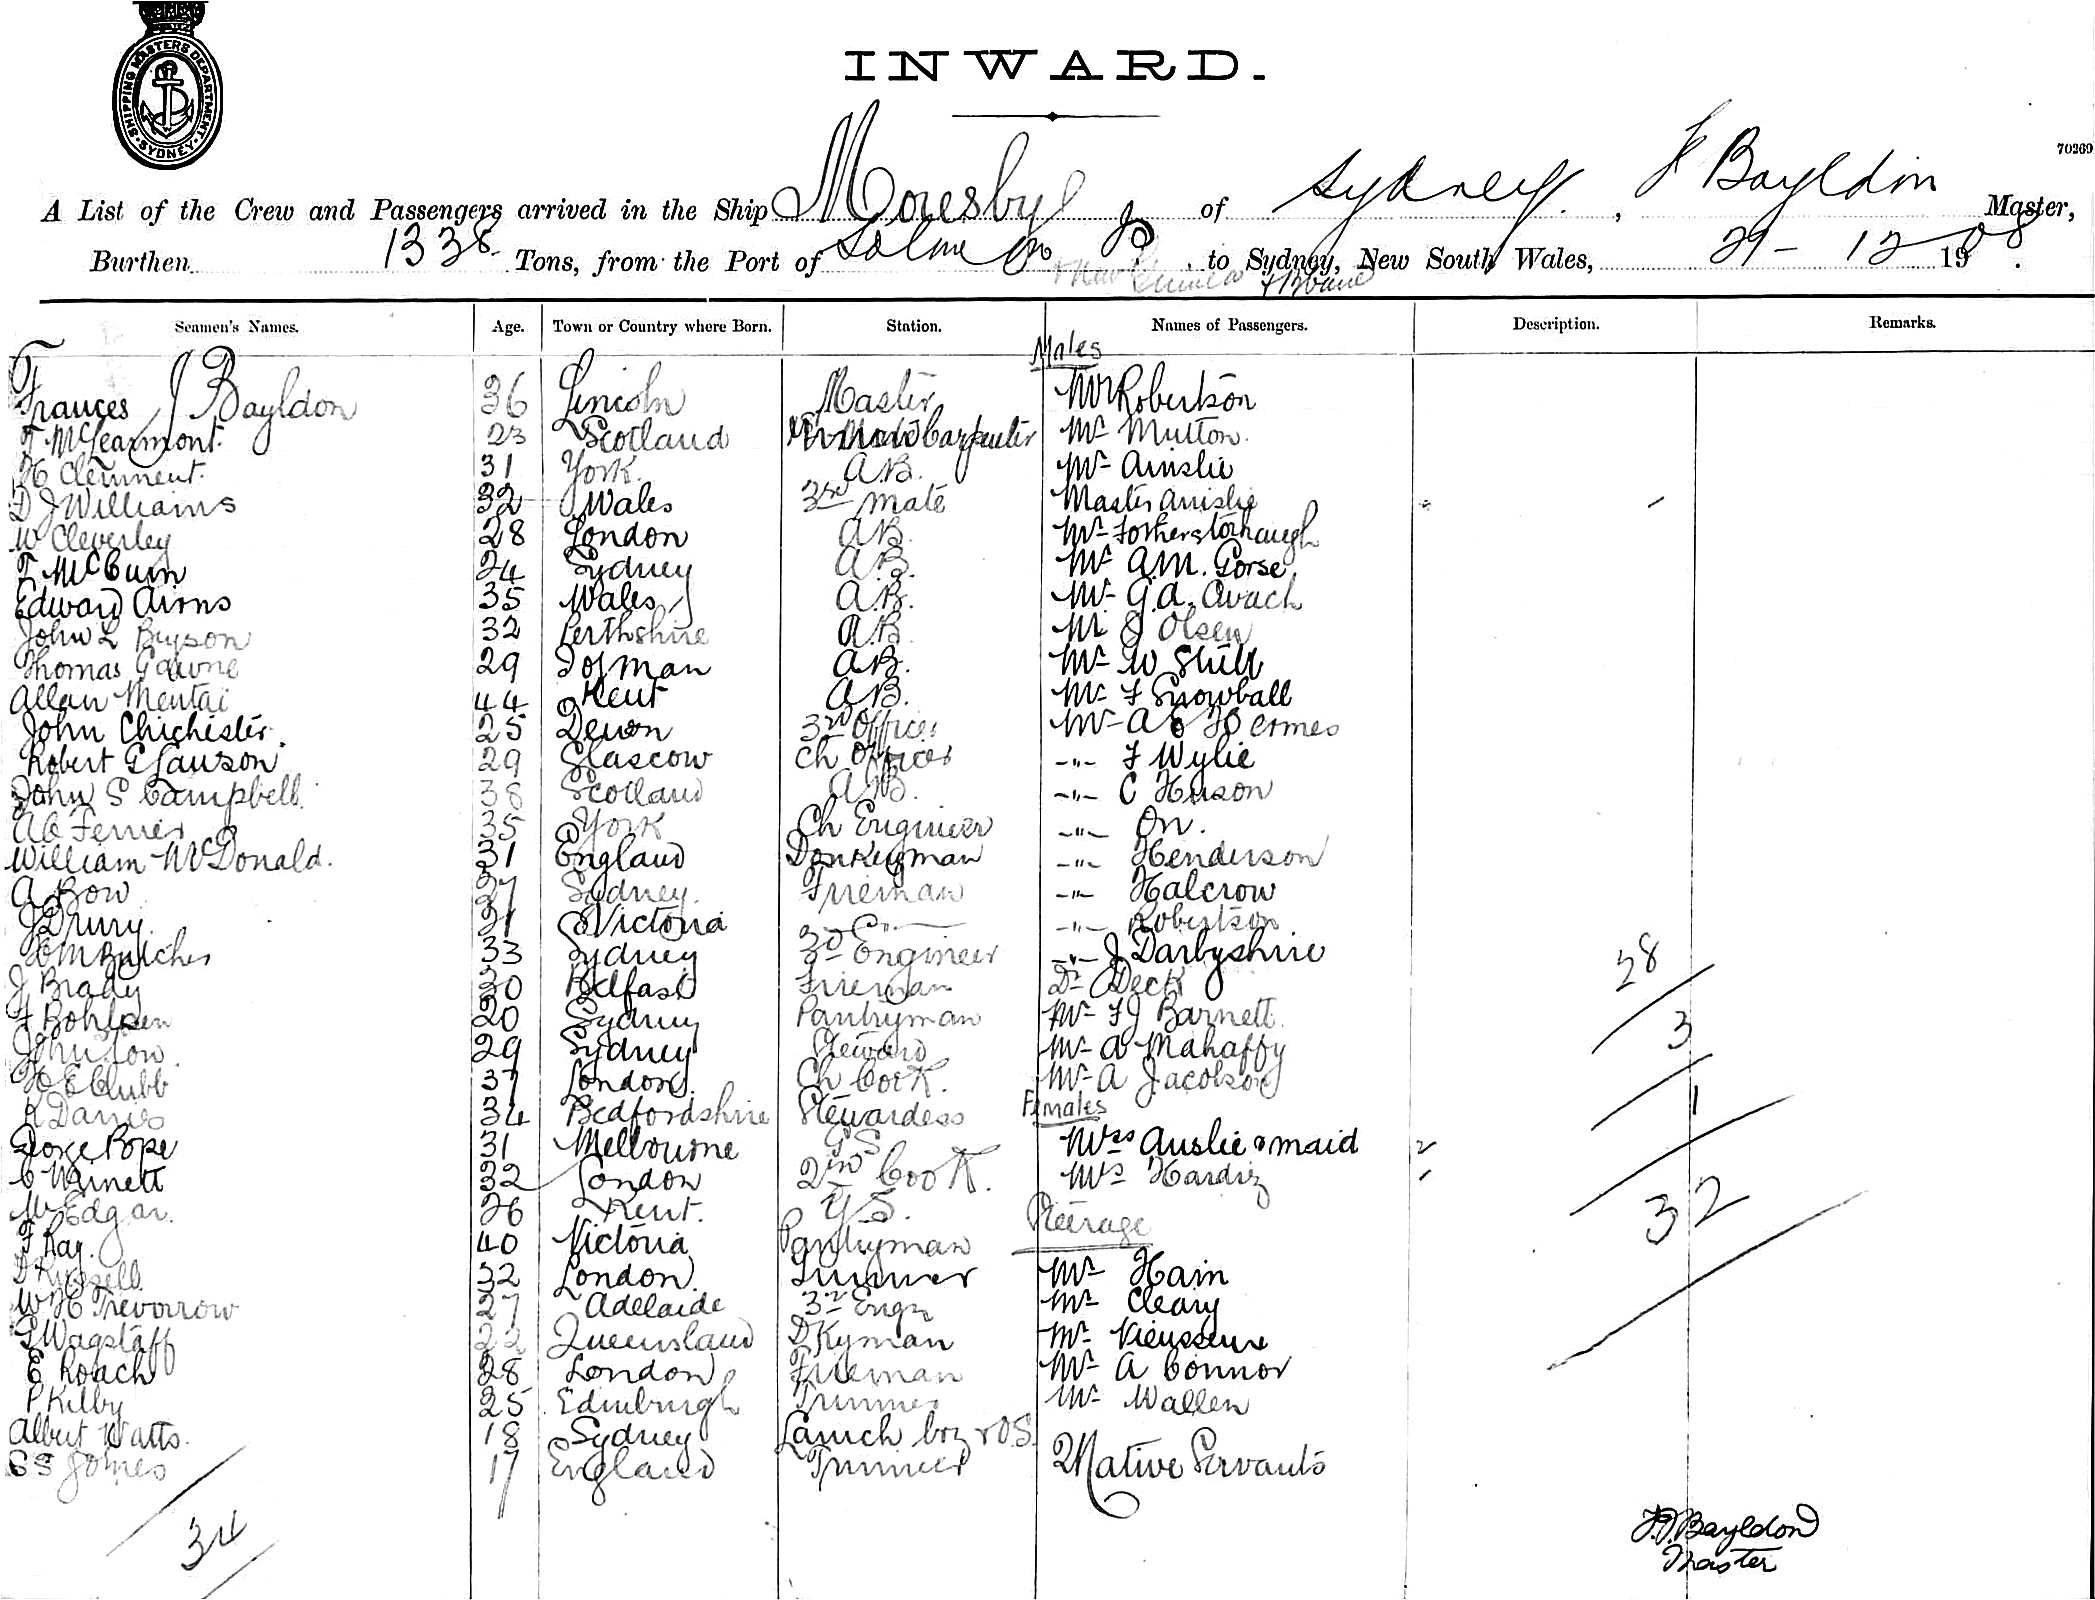 SHIPPING MASTERS DEPARTMENT
SYDNEY
INWARD.
70269
A List of the Crew and Passengers arrived in the Ship Moresby of Sydney, F Bayldon Master,
Burthen 1338 Tons, from the Port of Solomon Is to Sydney, New South Wales, 29-12 1908.
+ New Guinea + Bbane
Seamen's Names. Age. Town or Country where Born. Station. Names of Passengers. Description. Remarks.
Males
Frances J Bayldon 36 Lincoln Master Mr Robertson
F McLearmont. 23 Scotland Carpenter Mr Mutton.
H Clemment. 31 York. A.B. Mr Ainslie
D J Williams 32 Wales 3rd mate Master Ainslie
W Cleverley 28 London A.B. Mr
T McCurn 24 Sydney A.B. Mr A.M. Gorse.
Edward Airns 35 Wales A.B. Mr G.A. Avach
John L Bryson 32 Perthshire A.B. Mr J Olsen
Thomas Gawne 29 I of man A.B. Mr W Still
Allan Mentai 44 Kent A.B. Mr F Snowball
John Chichester. 25 Devon 3rd Officer Mr A E Hermes
Robert G Lawson 29 Glascow Ch Officer -"- F Wylie
John S Campbell 38 Scotland A.B. -"- C Huson
A C Ferrier 35 York Ch Engineer -"- On.
William McDonald. 31 England Donkeyman -"- Henderson
A Bow 27 Sydney. Fireman -"- Halcrow
J Drury. 31 Victoria -"- Robertson
Butcher 33 Sydney 3rd Engineer -"- J Darbyshire
J Brady 30 Belfast Fireman Dr Deck
F Bohlsen 20 Sydney Pantryman Mr F J Barnett.
John Low. 29 Sydney Steward Mr A Mahaffy
H E Clubb 37 London. Ch Cook. Mr A Jacobson
K Danies 34 Bedfordshire Stewardess
Females
George Pope 31 Melbourne G S Mrs Auslie & maid 2
C Warnett 32 London 2nd Cook. Mrs Hardiz 1
M Edgar. 26 Kent. G.S.
Steerage
F Ray. 40 Victoria Pantryman
D Russell 32 London. Trimmer Mr Hain
W H Trevorrow 27 Adelaide 3rd Engr Mr Cleary
T Wagstaff 22 Queensland D Kyman Mr Vieusseux
E Roach 28 London Fireman Mr A Connor
P Kilby 25 Edinburgh Trimmer Mr Wallen
Albert Watts. 18 Sydney Launch boy & O.S.
C S Jomes 17 England Trimmer 2 Native Servants
28
3
1
32
34
F. J. Bayldon
Master